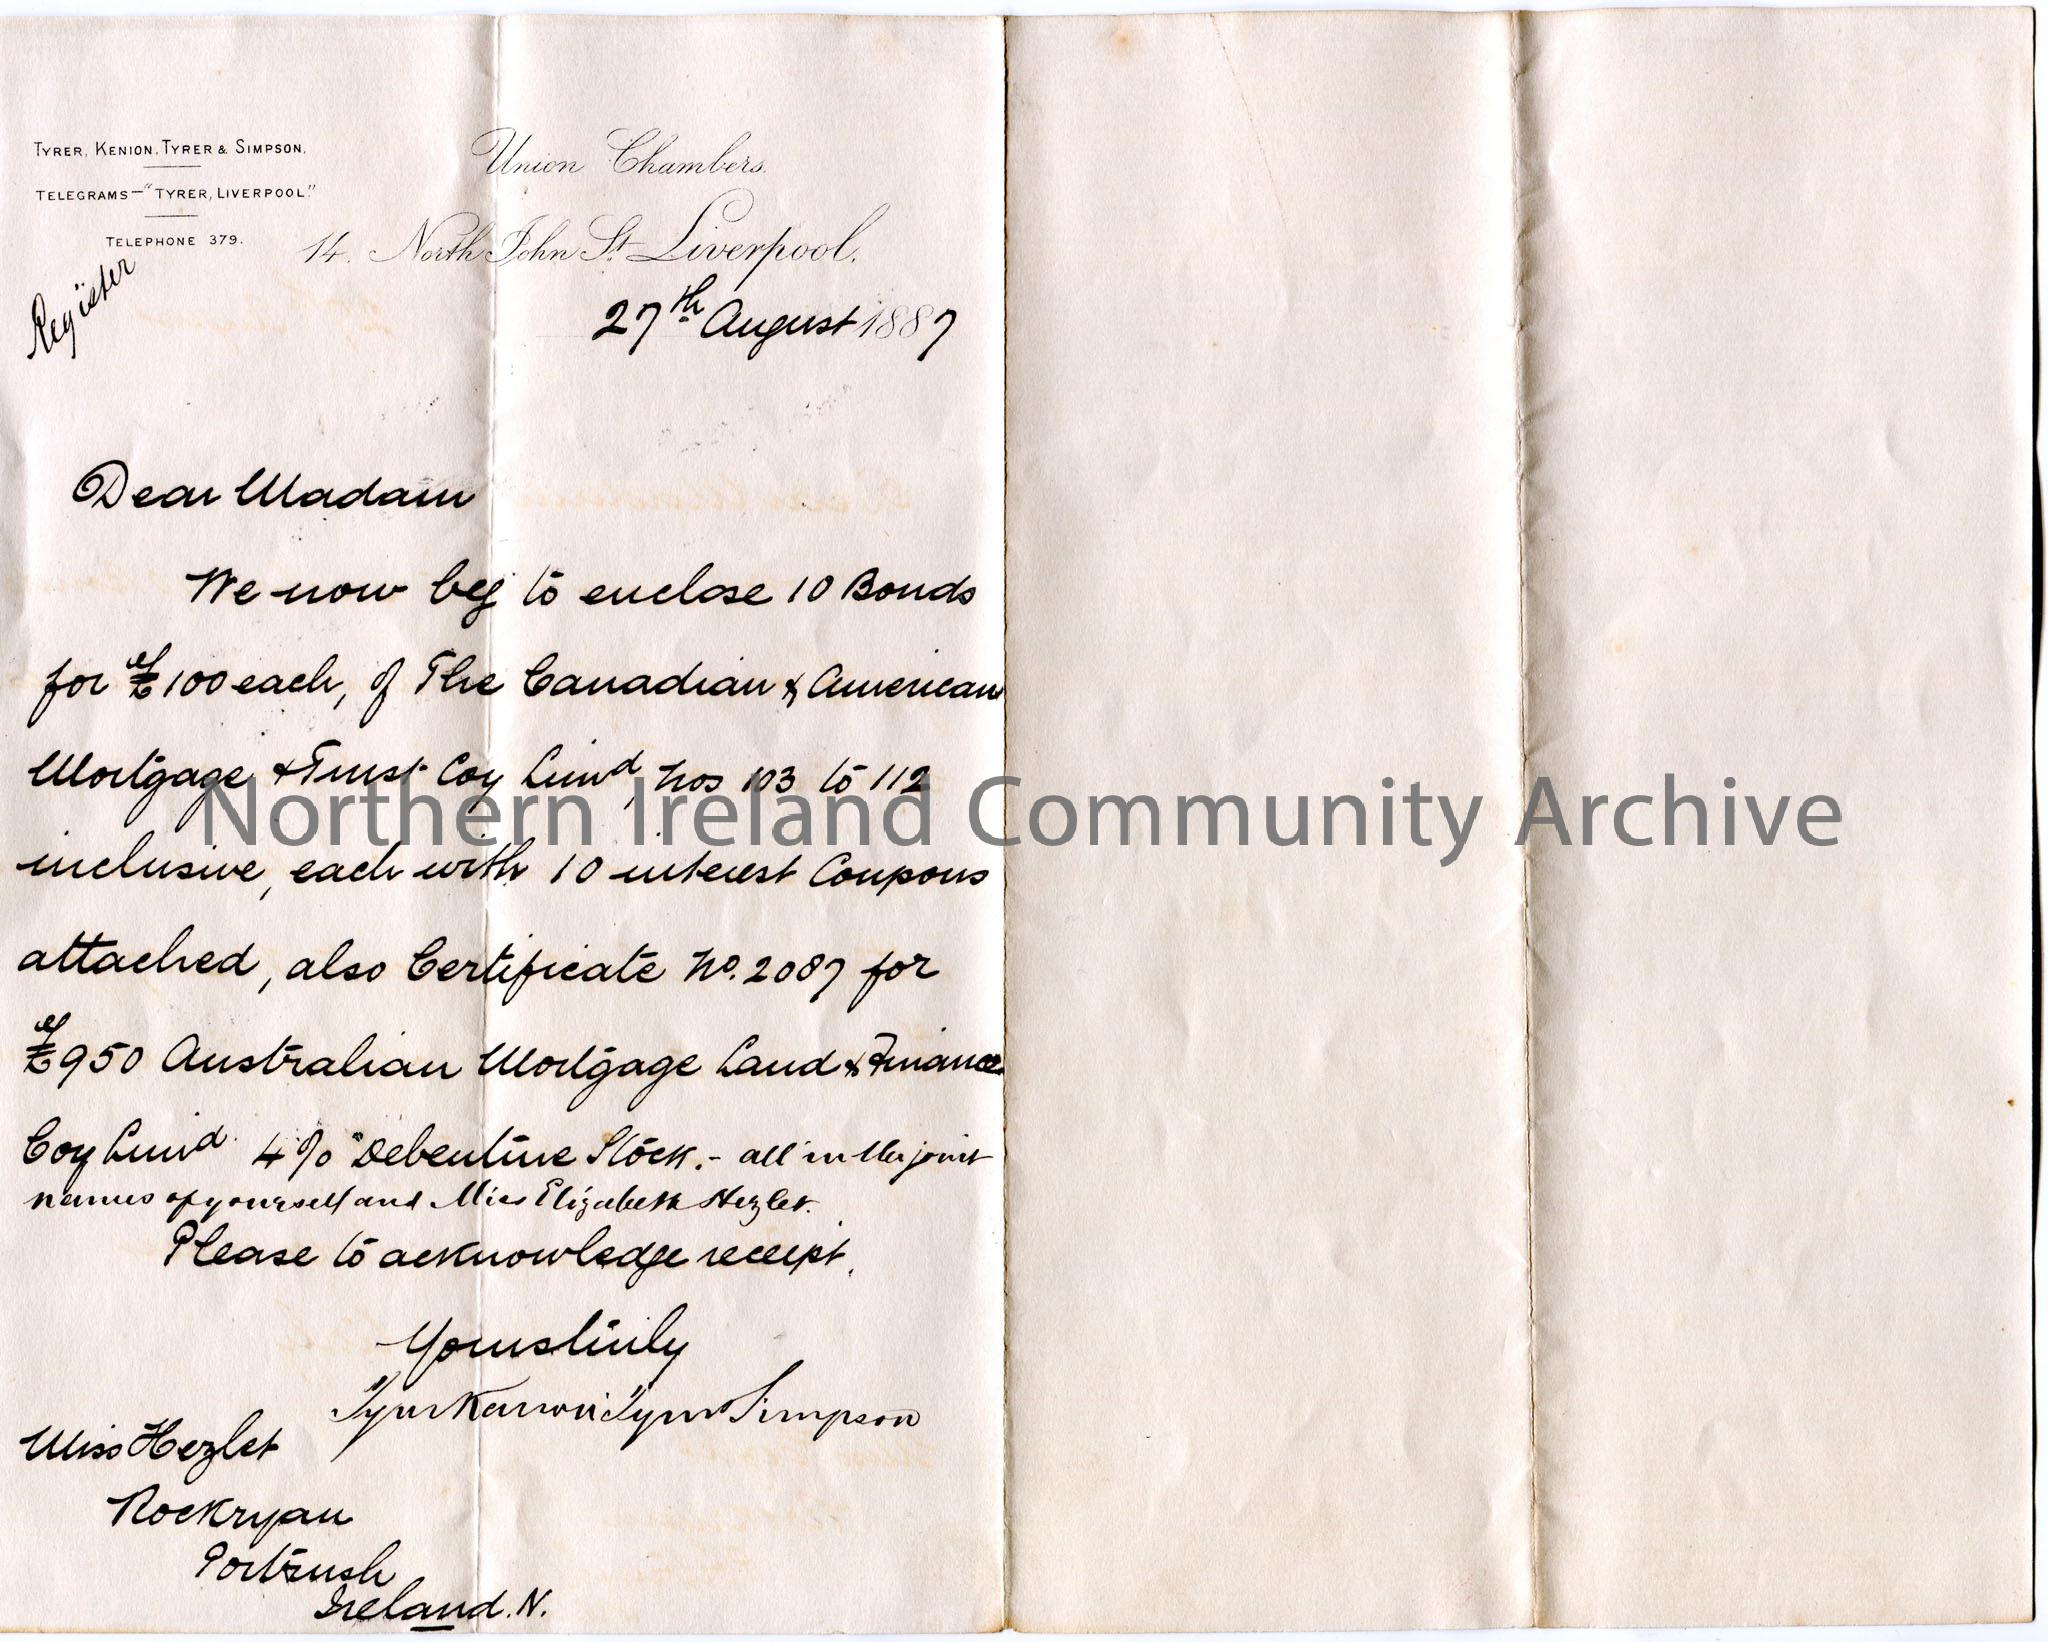 TYRER, KENION, TYRER & SIMPSON.
TELEGRAMS—"TYRER, LIVERPOOL."
TELEPHONE 379.
Register
Union Chambers.
14. North John St. Liverpool.
27th August 1887
Dear Madam
We now beg to enclose 10 Bonds
for £100 each, of The Canadian & American
Mortgage & Trust Coy Limd, Nos 103 to 112
inclusive, each with 10 interest Coupons
attached, also Certificate No. 2087 for
£950 Australian Mortgage Land & Finance
Coy Limd 4% Debenture Stock. - all in the joint
names of yourself and Miss Elizabeth Hezlet.
Please to acknowledge receipt.
Yours truly
Tyrer Kenion Tyrer Simpson
Miss Hezlet
Rockryan
Portrush
Ireland. N.
Northern Ireland Community Archive